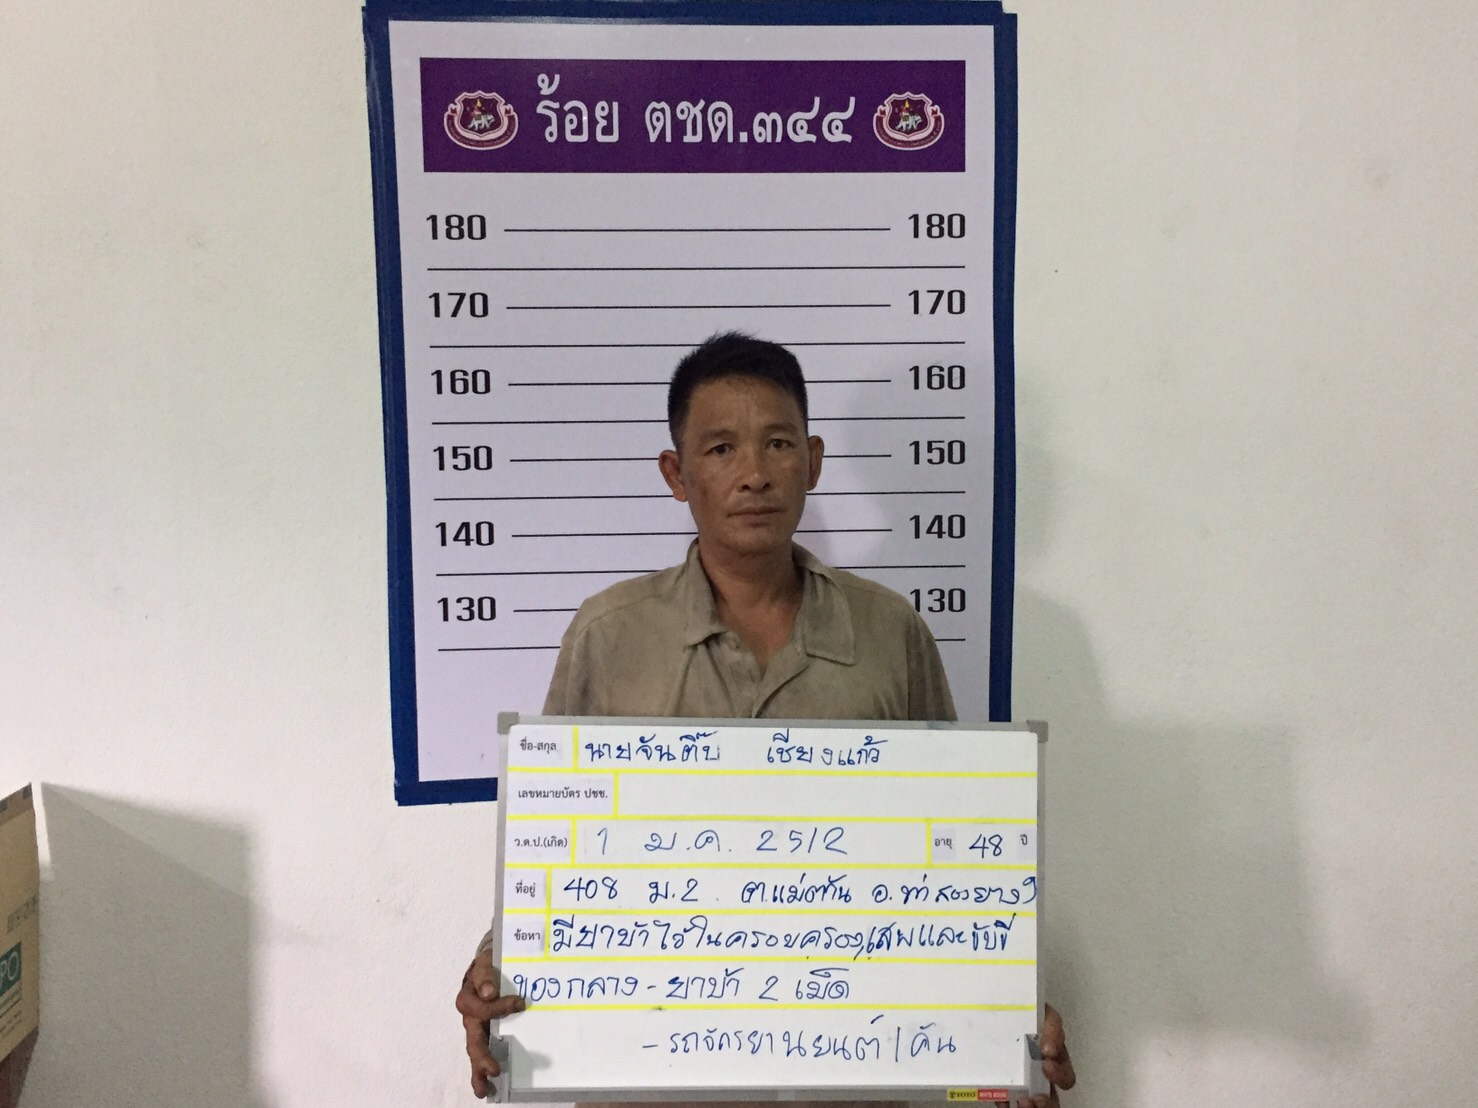 ร้อย ตชด.๓๔๔
180 180
170 170
160 160
150 150
140 140
130 130
ชื่อ-สกุล นายจันติ๊บ เชียงแก้ว
เลขหมายบัตร ปชช.
ว.ด.ป.(เกิด) 1 ม.ค. 2512 อายุ 48 ปี
ที่อยู่ 408 ม.2 ต.แม่ต้าน อ.ท่าสองยาง
ข้อหา มียาบ้าไว้ในครอบครอง,เสพและขับขี่
ของกลาง - ยาบ้า 2 เม็ด
- รถจักรยานยนต์ 1 คัน